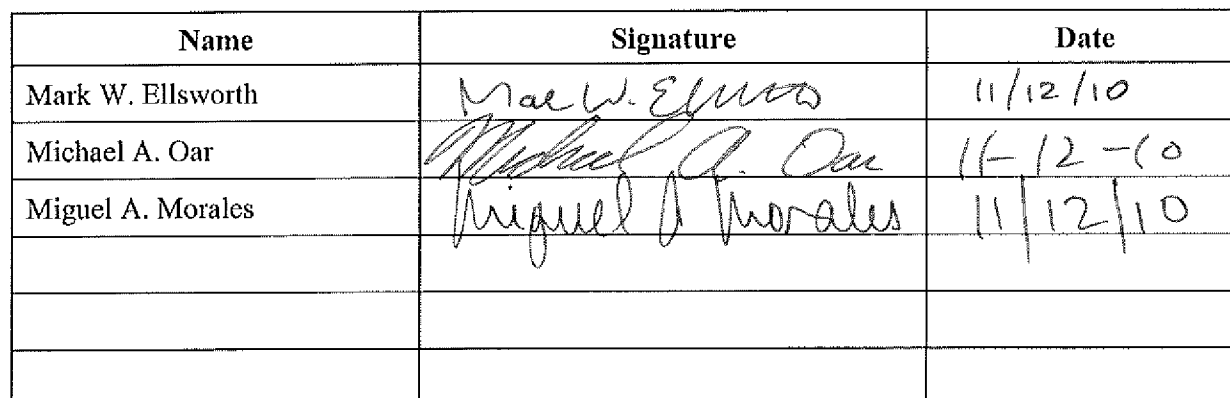 Name Signature Date
Mark W. Ellsworth Mark W. Ellsworth 11/12/10
Michael A. Oar Michael A. Oar 11-12-10
Miguel A. Morales Miguel A Morales 11/12/10